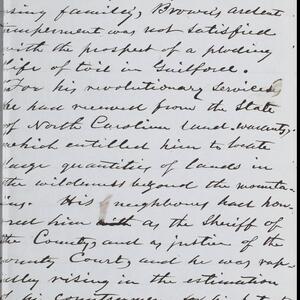 ing family, Brown's ardent
temperment was not satisfied
with the prospect of a ploding
life of toil in Guilford.
For his revolutionary services
he had received from the State
of North Carolina land warrants,
which entitled him to locate
large quantities of lands in
the wilderness beyond the mounta-
ins. His neighbours had hon-
ored him with as the Sheriff of
the County, and as justice of the
County Court, and he was rap-
idly rising in the estimation
of his Countrymen